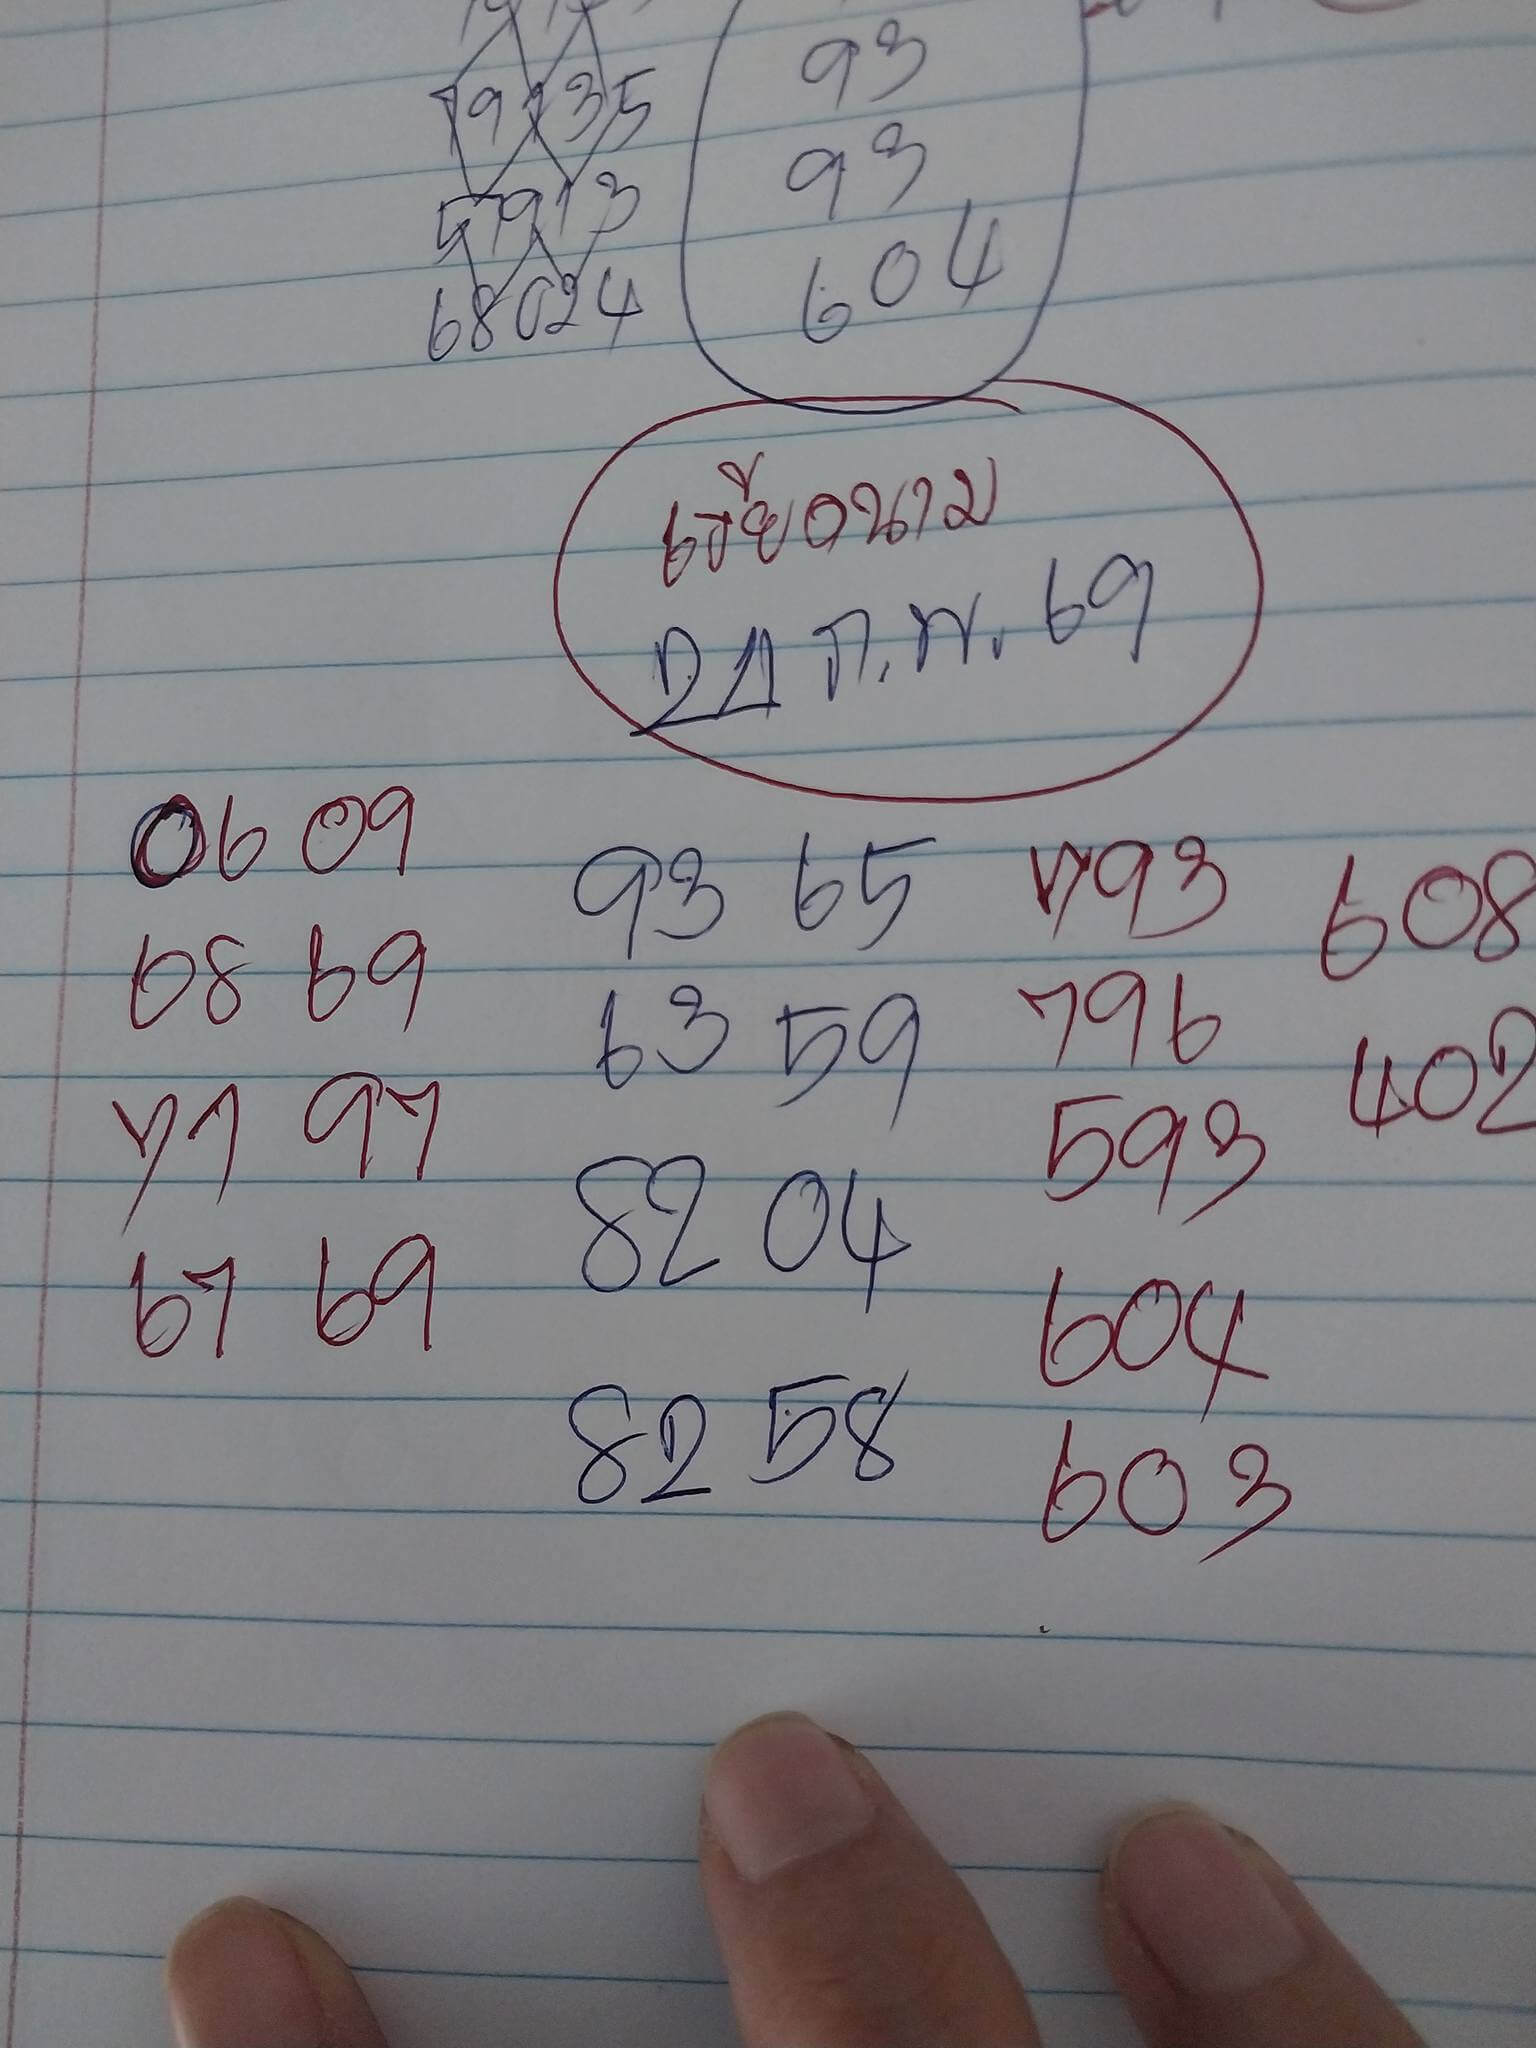 79135
93
93
57913
604
68024
เวียดนาม
24 ก.พ. 69
06 09
93 65
793
608
68 69
63 59
796
402
77 97
593
82 04
67 69
604
82 58
603